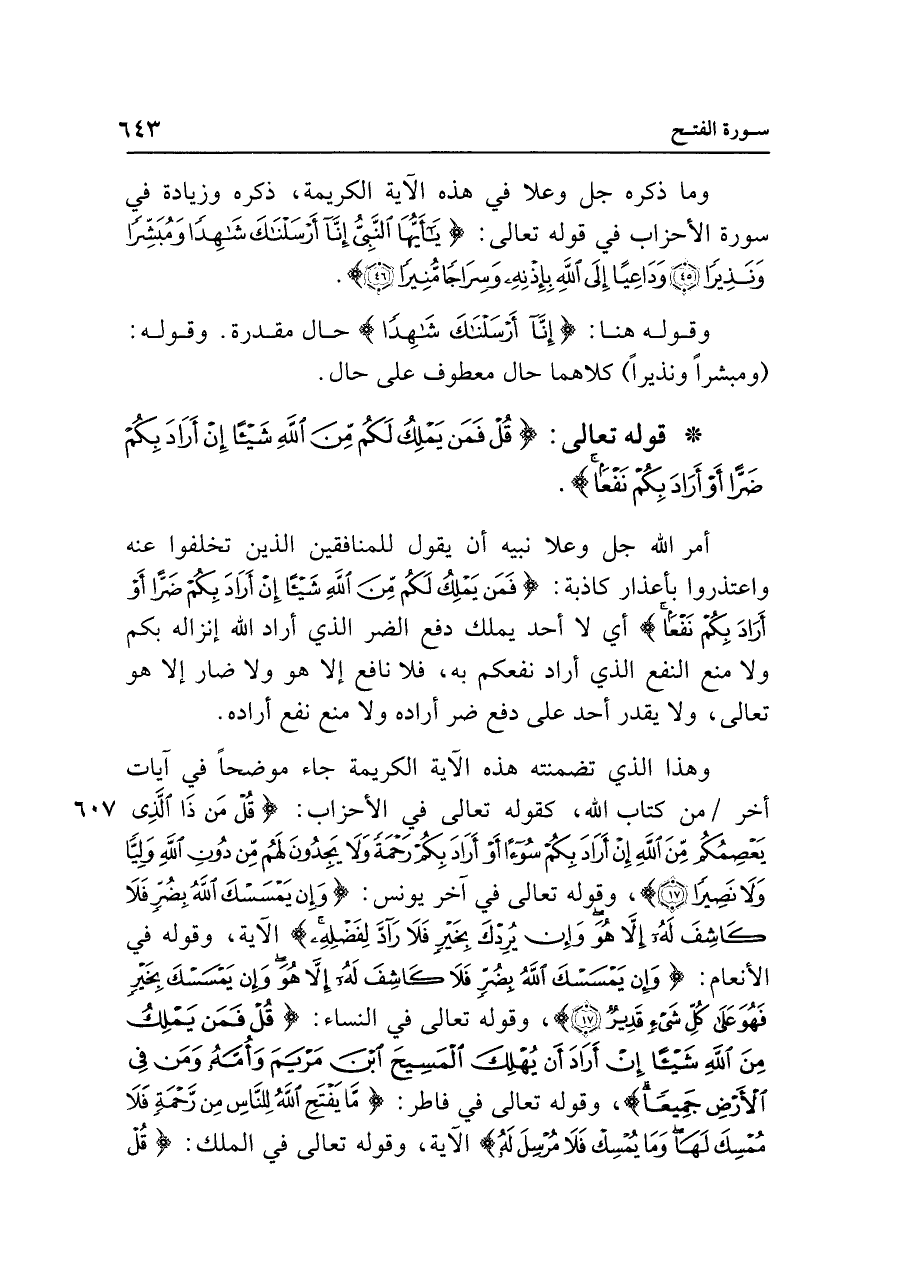 سورة الفتح ٦٤٣
وما ذكره جل وعلا في هذه الآية الكريمة، ذكره وزيادة في
سورة الأحزاب في قوله تعالى: ﴿ يَٰٓأَيُّهَا ٱلنَّبِيُّ إِنَّآ أَرْسَلْنَٰكَ شَٰهِدًا وَمُبَشِّرًا
وَنَذِيرًا ﴿٤٥﴾ وَدَاعِيًا إِلَى ٱللَّهِ بِإِذْنِهِۦ وَسِرَاجًا مُّنِيرًا ﴿٤٦﴾ ﴾.
وقوله هنا: ﴿ إِنَّآ أَرْسَلْنَٰكَ شَٰهِدًا ﴾ حال مقدرة. وقوله:
(ومبشراً ونذيراً) كلاهما حال معطوف على حال.
* قوله تعالى: ﴿ قُلْ فَمَن يَمْلِكُ لَكُم مِّنَ ٱللَّهِ شَيْـًٔا إِنْ أَرَادَ بِكُمْ
ضَرًّا أَوْ أَرَادَ بِكُمْ نَفْعَۢا ۚ﴾.
أمر الله جل وعلا نبيه أن يقول للمنافقين الذين تخلفوا عنه
واعتذروا بأعذار كاذبة: ﴿ فَمَن يَمْلِكُ لَكُم مِّنَ ٱللَّهِ شَيْـًٔا إِنْ أَرَادَ بِكُمْ ضَرًّا أَوْ
أَرَادَ بِكُمْ نَفْعَۢا ۚ﴾ أي لا أحد يملك دفع الضر الذي أراد الله إنزاله بكم
ولا منع النفع الذي أراد نفعكم به، فلا نافع إلا هو ولا ضار إلا هو
تعالى، ولا يقدر أحد على دفع ضر أراده ولا منع نفع أراده.
وهذا الذي تضمنته هذه الآية الكريمة جاء موضحاً في آيات
أخر /من كتاب الله، كقوله تعالى في الأحزاب: ﴿ قُلْ مَن ذَا ٱلَّذِى ٦٠٧
يَعْصِمُكُم مِّنَ ٱللَّهِ إِنْ أَرَادَ بِكُمْ سُوٓءًا أَوْ أَرَادَ بِكُمْ رَحْمَةً ۚ وَلَا يَجِدُونَ لَهُم مِّن دُونِ ٱللَّهِ وَلِيًّا
وَلَا نَصِيرًا ﴿١٧﴾ ﴾، وقوله تعالى في آخر يونس: ﴿ وَإِن يَمْسَسْكَ ٱللَّهُ بِضُرٍّ فَلَا
كَاشِفَ لَهُۥٓ إِلَّا هُوَ ۖ وَإِن يُرِدْكَ بِخَيْرٍ فَلَا رَآدَّ لِفَضْلِهِۦ ۚ﴾ الآية، وقوله في
الأنعام: ﴿ وَإِن يَمْسَسْكَ ٱللَّهُ بِضُرٍّ فَلَا كَاشِفَ لَهُۥٓ إِلَّا هُوَ ۖ وَإِن يَمْسَسْكَ بِخَيْرٍ
فَهُوَ عَلَىٰ كُلِّ شَىْءٍ قَدِيرٌ ﴿١٧﴾ ﴾، وقوله تعالى في النساء: ﴿ قُلْ فَمَن يَمْلِكُ
مِنَ ٱللَّهِ شَيْـًٔا إِنْ أَرَادَ أَن يُهْلِكَ ٱلْمَسِيحَ ٱبْنَ مَرْيَمَ وَأُمَّهُۥ وَمَن فِى
ٱلْأَرْضِ جَمِيعًا ۗ﴾، وقوله تعالى في فاطر: ﴿ مَّا يَفْتَحِ ٱللَّهُ لِلنَّاسِ مِن رَّحْمَةٍ فَلَا
مُمْسِكَ لَهَا ۖ وَمَا يُمْسِكْ فَلَا مُرْسِلَ لَهُۥ ﴾ الآية، وقوله تعالى في الملك: ﴿ قُلْ